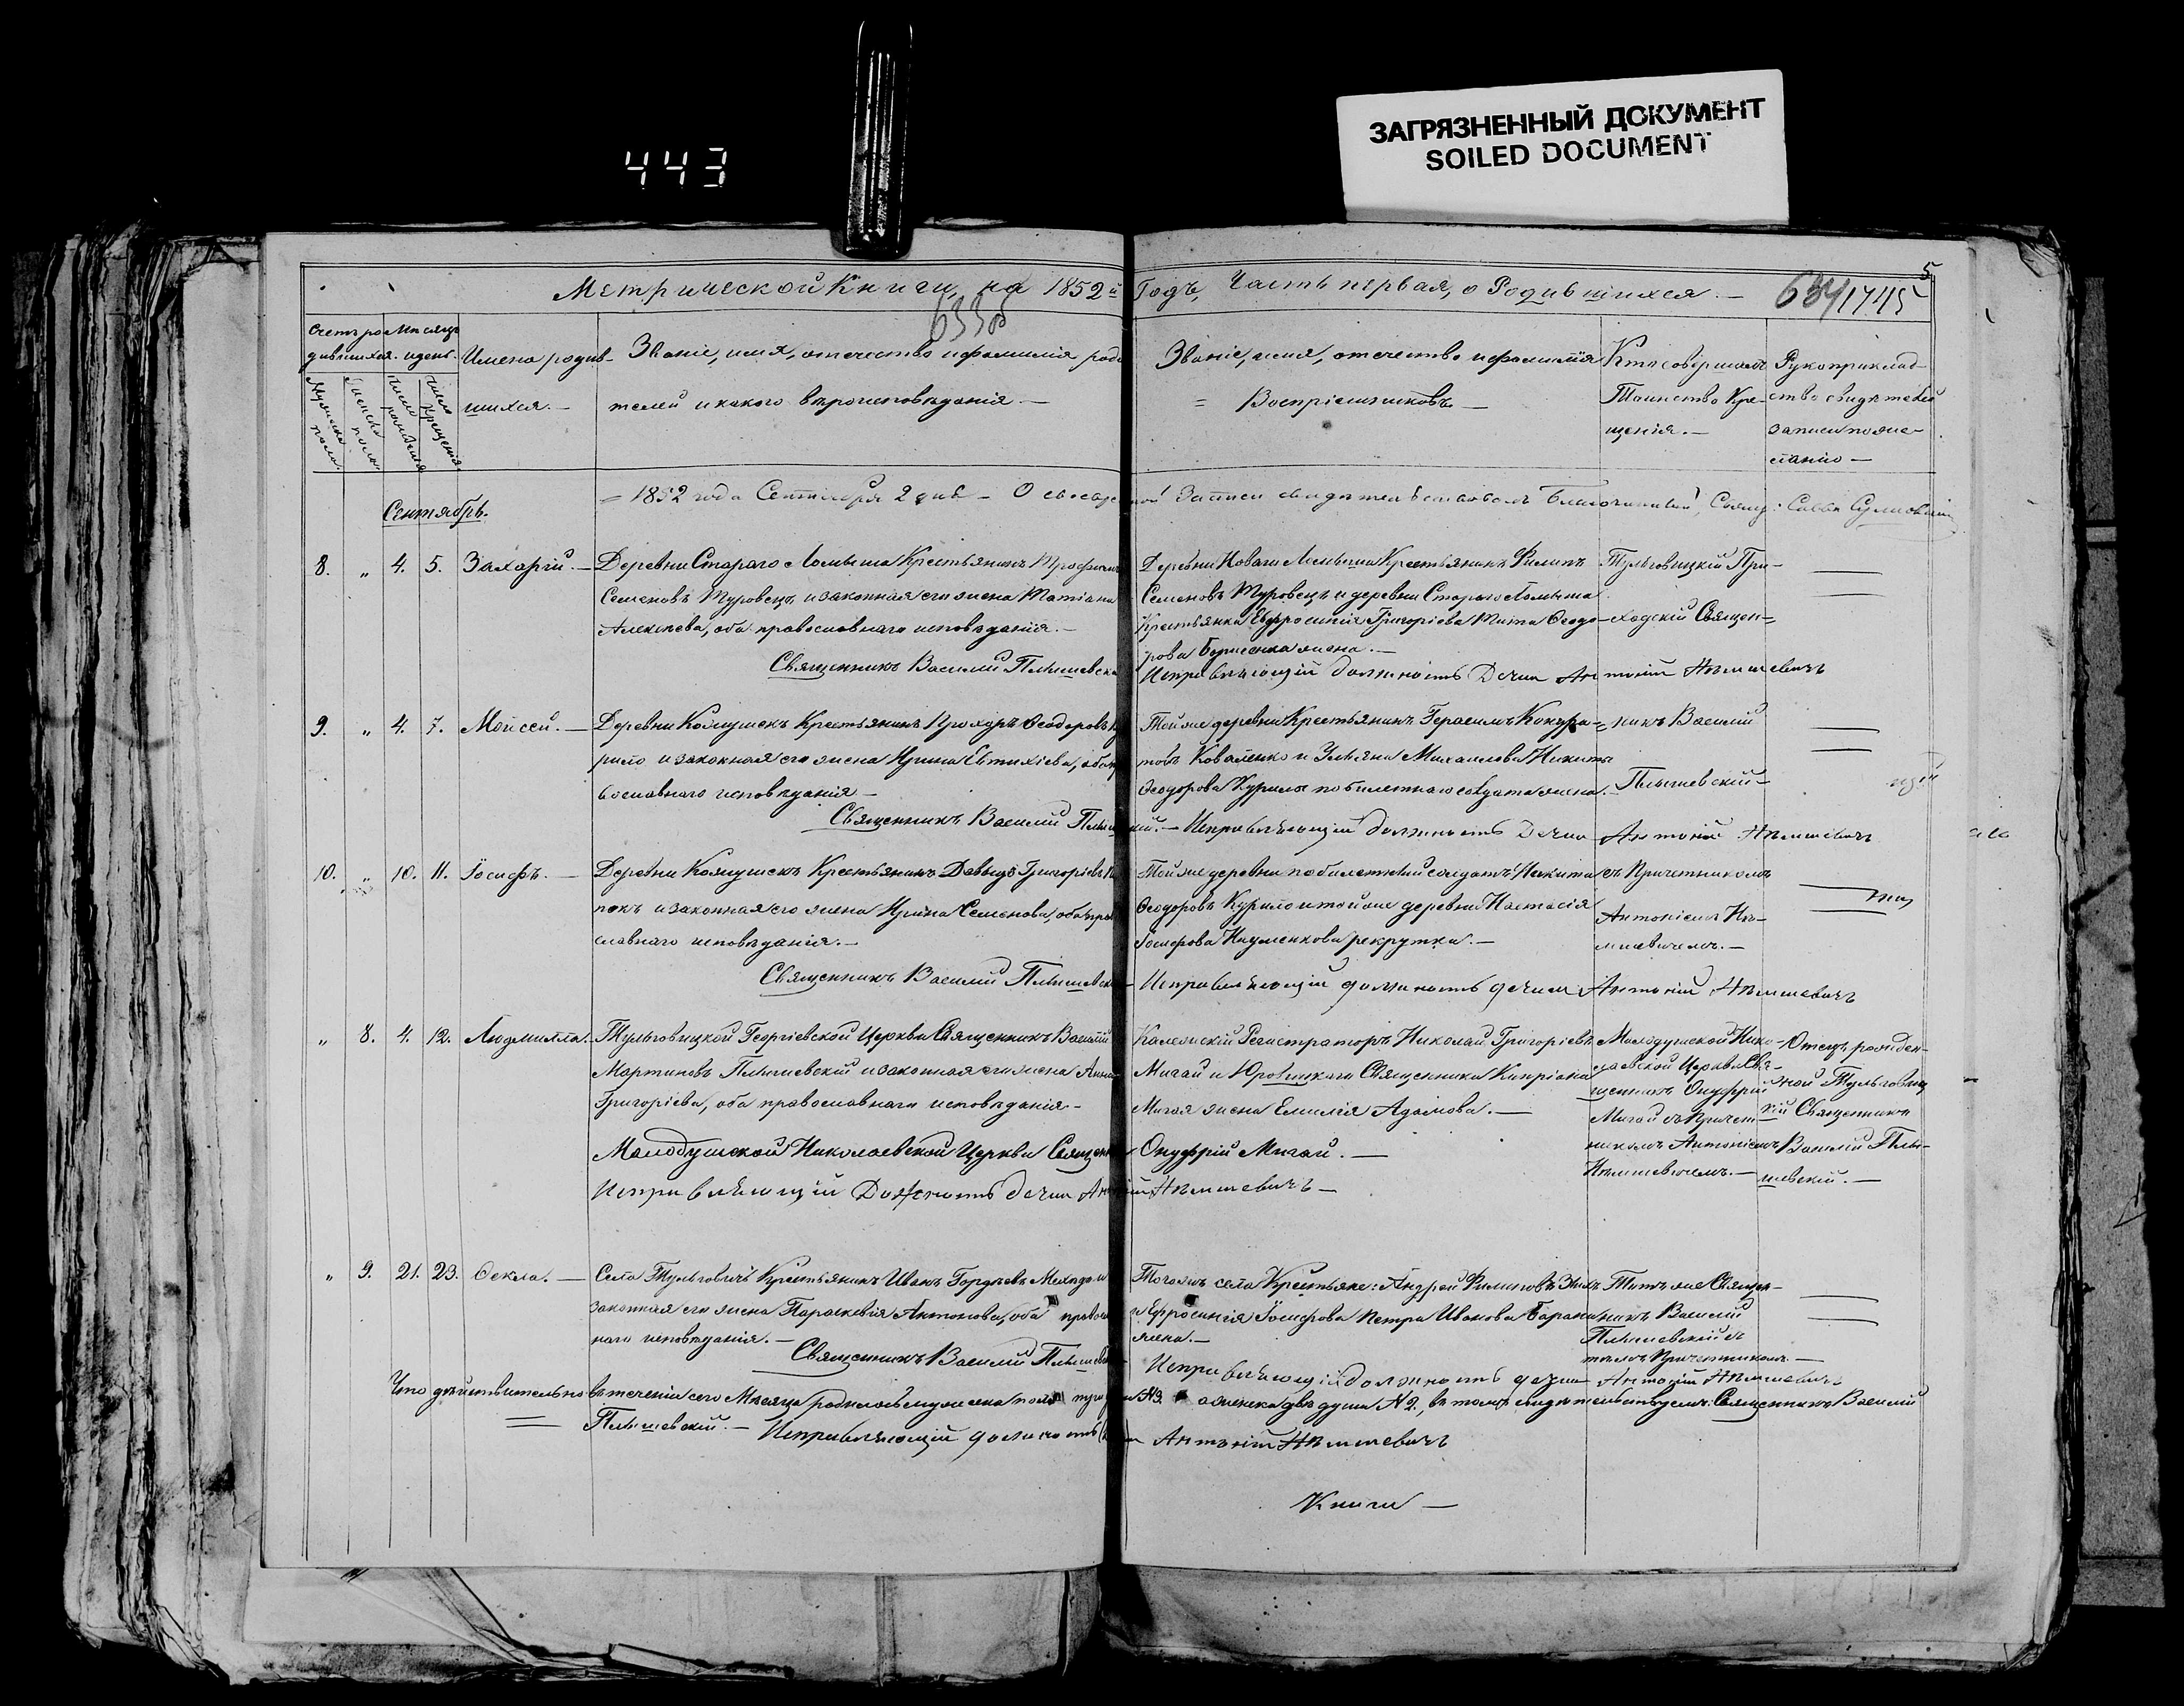 443
ЗАГРЯЗНЕННЫЙ ДОКУМЕНТ
SOILED DOCUMENT
5
Метрической Книги, на 1852й Годъ, Часть первая, о Родившихся.—
634 1745
Счетъ ро- Месяцъ
дившихся. и день.
Мужеска пола.
Женска пола.
Число рожденія
Число крещенія
Имена родив-
шихся.—
Званіе, имя, отечество и фамилія роди
телей и какого вѣроисповѣданія.—
Званіе, имя, отечество и фамилія
= Воспріемниковъ.—
Кто совершалъ
Таинство Кре-
щенія.—
Рукоприклад-
ство свидѣтелей
записи по же-
ланію—
= 1852 года Сентября 2 дня— О свидѣтельствовалъ Благочинный, Свящ:
Сентябрь.
8. „ 4. 5. Захарій.—
Деревни Стараго Ломыша Крестьянинъ Трофимъ
Семеновъ Туровецъ и законная его жена Татіана
Алексѣева, оба православнаго исповѣданія.—
Священникъ Василій Плышевскі
Деревни Новаго Ломыша Крестьянинъ Филипъ
Семеновъ Туровецъ и деревни Стараго Ломыша
Крестьянка Евфросинія Григорієва Тита Ѳеодо-
рова жена.—
Исправляющій должность Дечка Антоній Нѣмшевичъ
Тульговицкій При-
ходскій Священ=
9. „ 4. 7. Моисей.—
Деревни Кожушекъ Крестьянинъ Прохоръ Ѳеодоровъ Ку
рило и законная его жена Ирина Евтихіева, оба пр
вославнаго исповѣданія—
Священникъ Василій Плыш
Той же деревни Крестьянинъ Герасимъ Кондра-
товъ Коваленко и Ульяна Михаилова Никиты
Ѳеодорова Курилы по билетнаго солдата жена.—
кій.— Исправляющій должность Дечка Антоній Нѣмшевичъ
никъ Василій
Плышевскій—
10. „ 10. 11. Іосифъ.—
Деревни Кожушекъ Крестьянинъ Давыдъ Григорієвъ
и законная его жена Ирина Семенова, оба пра
славнаго исповѣданія.—
Священникъ Василій Плышевскі
Той же деревни по билетный солдатъ Никита
Ѳеодоровъ Курило и той же деревни Настасія
Іосифова Науменкова рекрутка.—
Исправляющій должность дечка Антоній Нѣмшевичъ
съ Причетникомъ
Антоніемъ Нѣ-
мшевичемъ.—
„ 8. 4. 12. Людмилла.—
Тульговицкой Георгіевской Церкви Священникъ Василій
Мартиновъ Плышевскій и законная его жена Анна
Григоріева, оба православнаго исповѣданія—
Малодушской Николаевской Церкви Священ
Исправляющій Должность дечка Ан
Колежскій Регистраторъ Николай Григоріевъ
Мигай и Юровицкаго Священника Кипріана
Мигая жена Емилія Адамова.—
Онуфрій Мигай.—
ій Нѣмшевичъ—
Малодушской Нико-
лаевской Церкви Свя-
щенникъ Онуфрій
Мигай съ Причет-
никомъ Антоніемъ
Нѣмшевичемъ.—
Отецъ рожден-
ной Тульговиц
кій Священникъ
Василій Плы-
шевскій.—
„ 9. 21. 23. Ѳекла.—
Села Тульговичъ Крестьянинъ Иванъ Гордѣевъ и
законная его жена Параскевія Антонова, оба правосл
наго исповѣданія.—
Священникъ Василій Плышевскі
Того жъ села Крестьяне: Андрей Филиповъ
и Ефросинія Іосифова Петра Иванова Барана
жена.—
Исправляющій должность дечка Антоній Нѣмшевичъ
Тотъ же Священ-
никъ Василій
Плышевскій съ
тѣмъ Причетникомъ.—
Что дѣйствительно въ теченіи сего Месяца родилось мужеска пола три № 3. а женска двѣ души № 2, въ томъ свидѣтельствуемъ: Священникъ Василій
Плышевскій.— Исправляющій должность Антоній Нѣмшевичъ
Книги—